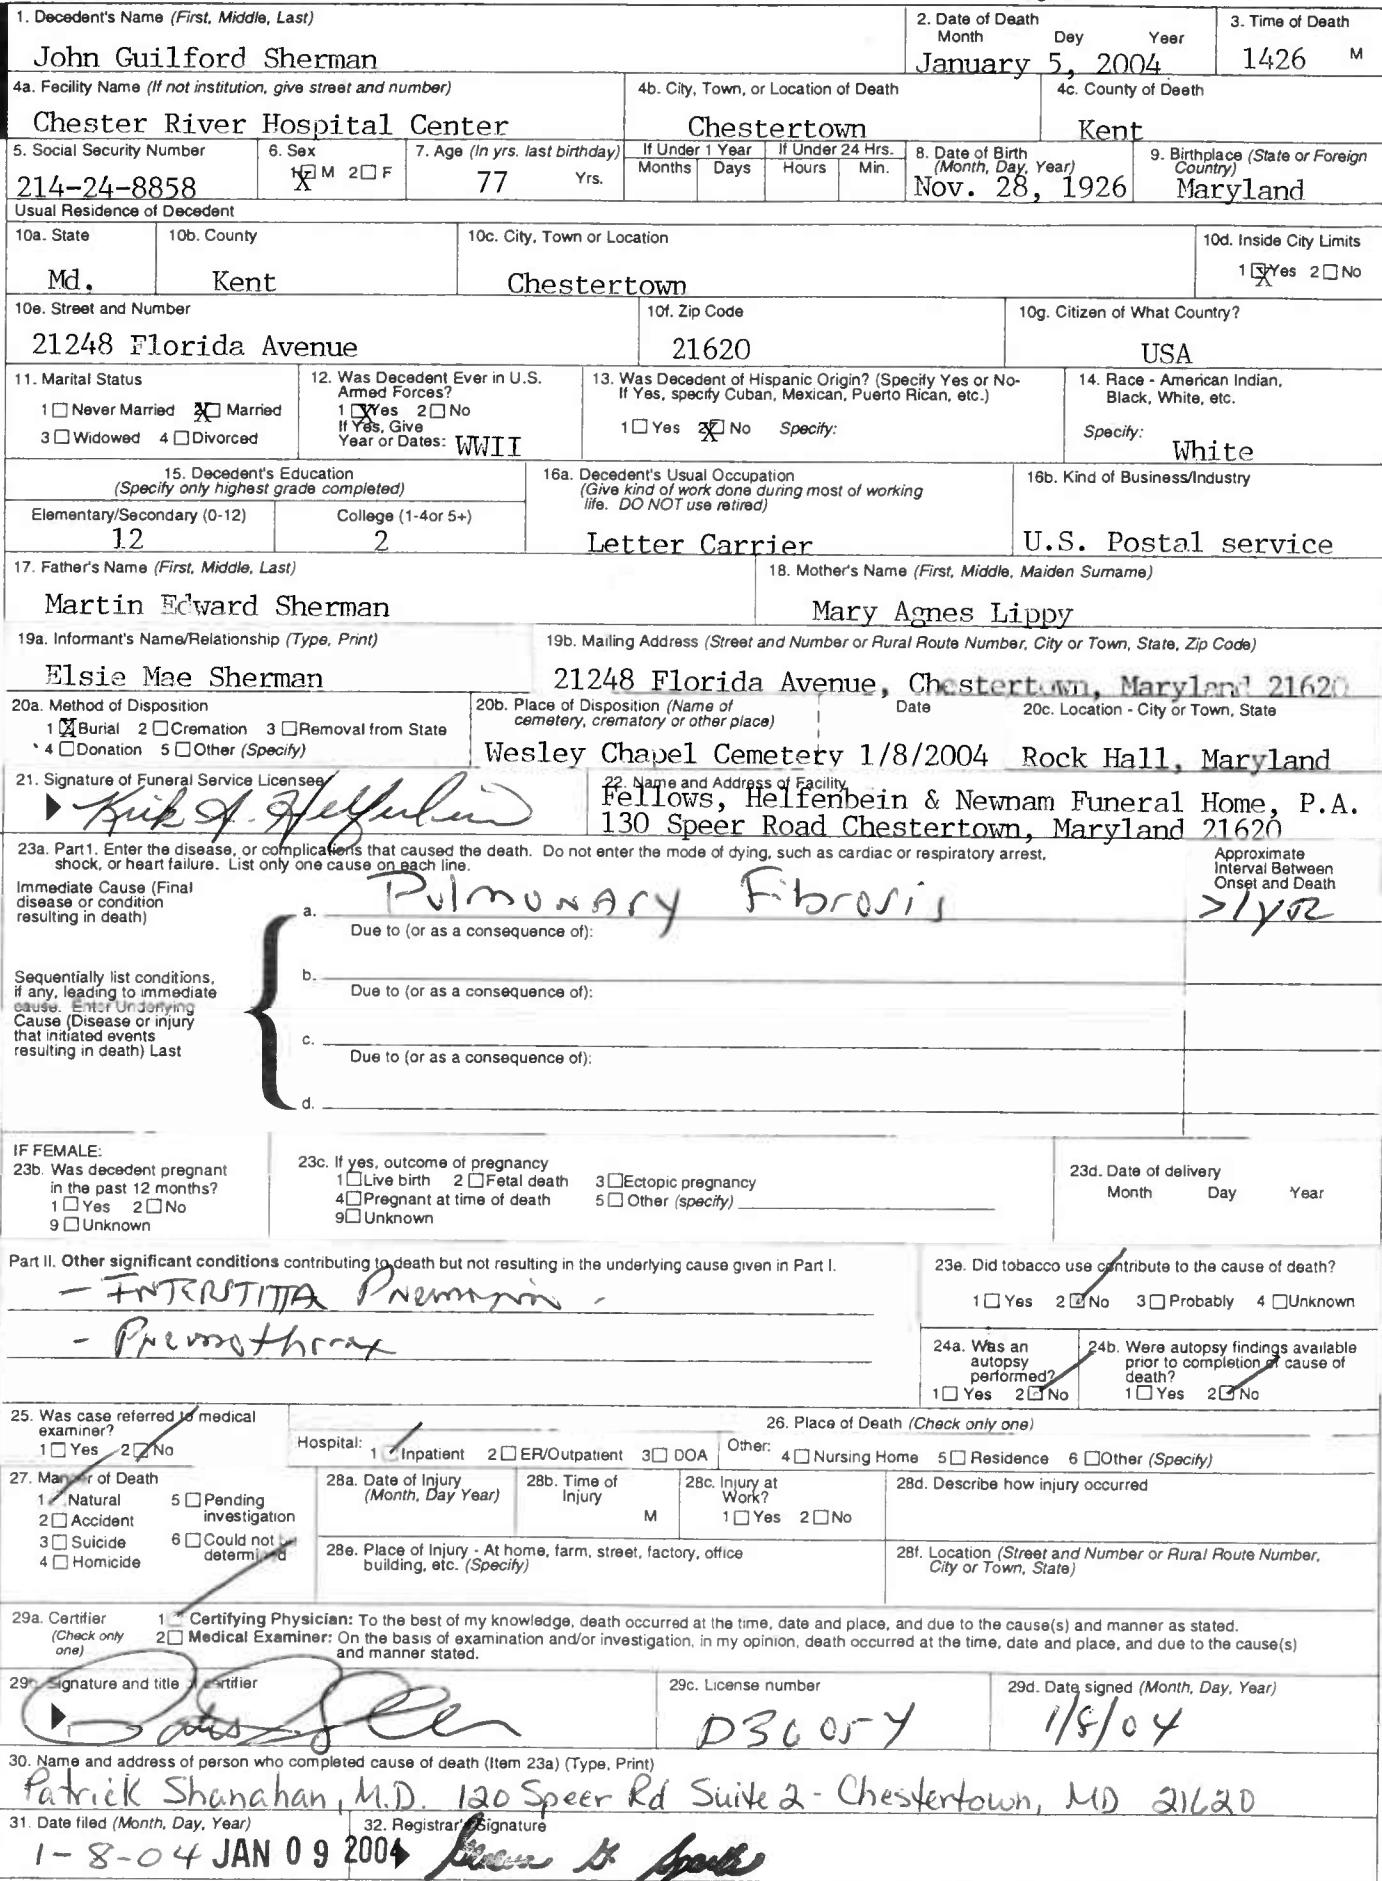 1. Decedent's Name (First, Middle, Last)
John Guilford Sherman
2. Date of Death
Month Dey Yeer
January 5, 2004
3. Time of Death
1426 M
4a. Fecility Name (If not institution, give street and number)
Chester River Hospital Center
4b. City, Town, or Location of Death
Chestertown
4c. County of Deeth
Kent
5. Social Security Number
214-24-8858
6. Sex
1 X M 2☐ F
7. Age (In yrs. last birthday)
77 Yrs.
If Under 1 Year
Months Days
If Under 24 Hrs.
Hours Min.
8. Date of Birth
(Month, Day, Year)
Nov. 28, 1926
9. Birthplace (State or Foreign
Country)
Maryland
Usual Residence of Decedent
10a. State
Md.
10b. County
Kent
10c. City, Town or Location
Chestertown
10d. Inside City Limits
1 X Yes 2☐ No
10e. Street and Number
21248 Florida Avenue
10f. Zip Code
21620
10g. Citizen of What Country?
USA
11. Marital Status
1☐ Never Married 2 X Married
3☐ Widowed 4☐ Divorced
12. Was Decedent Ever in U.S.
Armed Forces?
1 X Yes 2☐ No
If Yes, Give
Year or Dates: WWII
13. Was Decedent of Hispanic Origin? (Specify Yes or No-
If Yes, specify Cuban, Mexican, Puerto Rican, etc.)
1☐ Yes 2 X No Specify:
14. Race - American Indian,
Black, White, etc.
Specify:
White
15. Decedent's Education
(Specify only highest grade completed)
Elementary/Secondary (0-12)
12
College (1-4or 5+)
2
16a. Decedent's Usual Occupation
(Give kind of work done during most of working
life. DO NOT use retired)
Letter Carrier
16b. Kind of Business/Industry
U.S. Postal service
17. Father's Name (First, Middle, Last)
Martin Edward Sherman
18. Mother's Name (First, Middle, Maiden Surname)
Mary Agnes Lippy
19a. Informant's Name/Relationship (Type, Print)
Elsie Mae Sherman
19b. Mailing Address (Street and Number or Rural Route Number, City or Town, State, Zip Code)
21248 Florida Avenue, Chestertown, Maryland 21620
20a. Method of Disposition
1 X Burial 2☐ Cremation 3☐ Removal from State
4☐ Donation 5☐ Other (Specify)
20b. Place of Disposition (Name of
cemetery, crematory or other place)
Wesley Chapel Cemetery
Date
1/8/2004
20c. Location - City or Town, State
Rock Hall, Maryland
21. Signature of Funeral Service Licensee
Kirk A. Helfenbein
22. Name and Address of Facility
Fellows, Helfenbein & Newnam Funeral Home, P.A.
130 Speer Road Chestertown, Maryland 21620
23a. Part1. Enter the disease, or complications that caused the death. Do not enter the mode of dying, such as cardiac or respiratory arrest,
shock, or heart failure. List only one cause on each line.
Approximate
Interval Between
Onset and Death
Immediate Cause (Final
disease or condition
resulting in death)
a. Pulmonary Fibrosis
>1yr
Due to (or as a consequence of):
Sequentially list conditions,
if any, leading to immediate
cause. Enter Underlying
Cause (Disease or injury
that initiated events
resulting in death) Last
b.
Due to (or as a consequence of):
c.
Due to (or as a consequence of):
d.
IF FEMALE:
23b. Was decedent pregnant
in the past 12 months?
1☐ Yes 2☐ No
9☐ Unknown
23c. If yes, outcome of pregnancy
1☐ Live birth 2☐ Fetal death 3☐ Ectopic pregnancy
4☐ Pregnant at time of death 5☐ Other (specify)
9☐ Unknown
23d. Date of delivery
Month Day Year
Part II. Other significant conditions contributing to death but not resulting in the underlying cause given in Part I.
- Pneumothorax
23e. Did tobacco use contribute to the cause of death?
1☐ Yes 2☑ No 3☐ Probably 4☐ Unknown
24a. Was an
autopsy
performed?
1☐ Yes 2☑ No
24b. Were autopsy findings available
prior to completion of cause of
death?
1☐ Yes 2☑ No
25. Was case referred to medical
examiner?
1☐ Yes 2☑ No
26. Place of Death (Check only one)
Hospital: 1☑ Inpatient 2☐ ER/Outpatient 3☐ DOA
Other: 4☐ Nursing Home 5☐ Residence 6☐ Other (Specify)
27. Manner of Death
1☑ Natural 5☐ Pending
investigation
2☐ Accident
3☐ Suicide 6☐ Could not be
determined
4☐ Homicide
28a. Date of Injury
(Month, Day Year)
28b. Time of
Injury
M
28c. Injury at
Work?
1☐ Yes 2☐ No
28d. Describe how injury occurred
28e. Place of Injury - At home, farm, street, factory, office
building, etc. (Specify)
28f. Location (Street and Number or Rural Route Number,
City or Town, State)
29a. Certifier
(Check only
one)
1☑ Certifying Physician: To the best of my knowledge, death occurred at the time, date and place, and due to the cause(s) and manner as stated.
2☐ Medical Examiner: On the basis of examination and/or investigation, in my opinion, death occurred at the time, date and place, and due to the cause(s)
and manner stated.
29b. Signature and title of certifier
29c. License number
D36054
29d. Date signed (Month, Day, Year)
1/8/04
30. Name and address of person who completed cause of death (Item 23a) (Type, Print)
Patrick Shanahan, M.D. 120 Speer Rd Suite 2 - Chestertown, MD 21620
31. Date filed (Month, Day, Year)
1-8-04 JAN 09 2004
32. Registrar's Signature